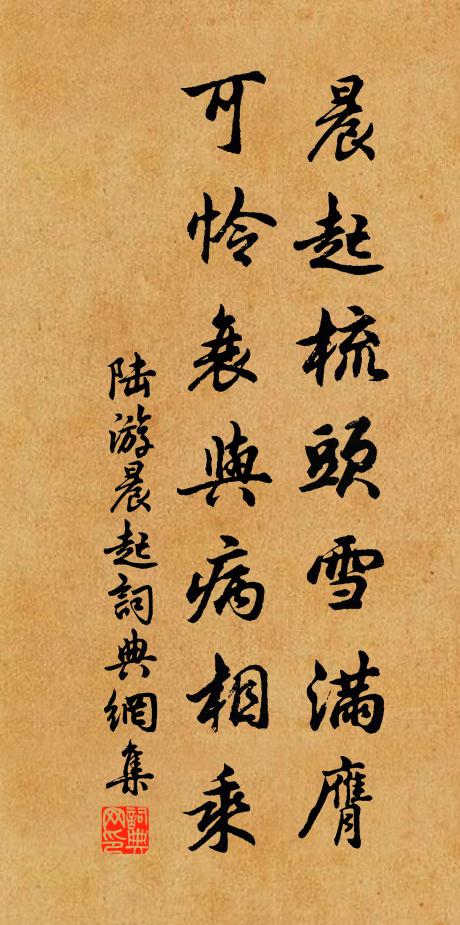 晨起梳頭雪滿膺
可憐衰與病相乘
陆游晨起詞典網集
詞典网印